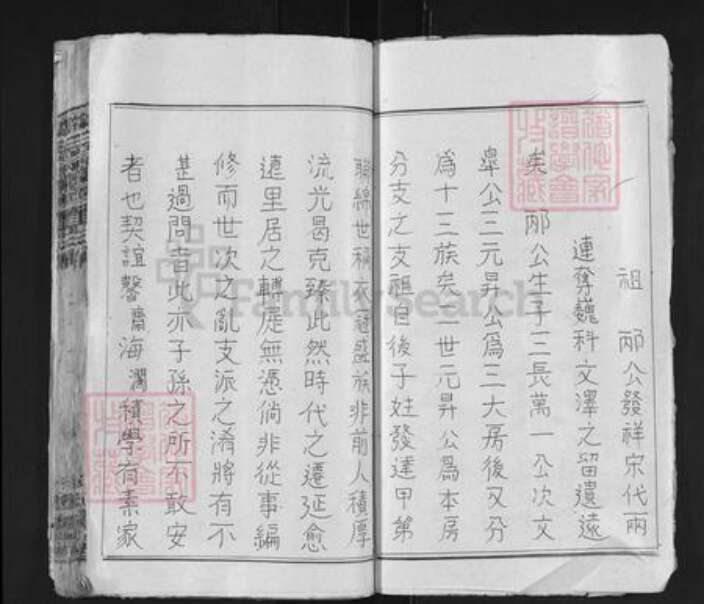 祖邴公發祥宋代兩
連奪巍科文澤之留遺遠
矣邴公生子三長萬一公次文
皋公三元昇公為三大房後又分
為十三族矣二世元昇公為本房
分支之支祖自後子姓發達甲第
聯綿世稱衣冠盛族非前人積厚
流光曷克臻此然時代之遷延愈
遠里居之轉徙無憑倘非從事編
修而世次之亂支派之淆將有不
甚過問者此亦子孫之所不敢安
者也契誼馨齋海瀾積學有素家
FamilySearch